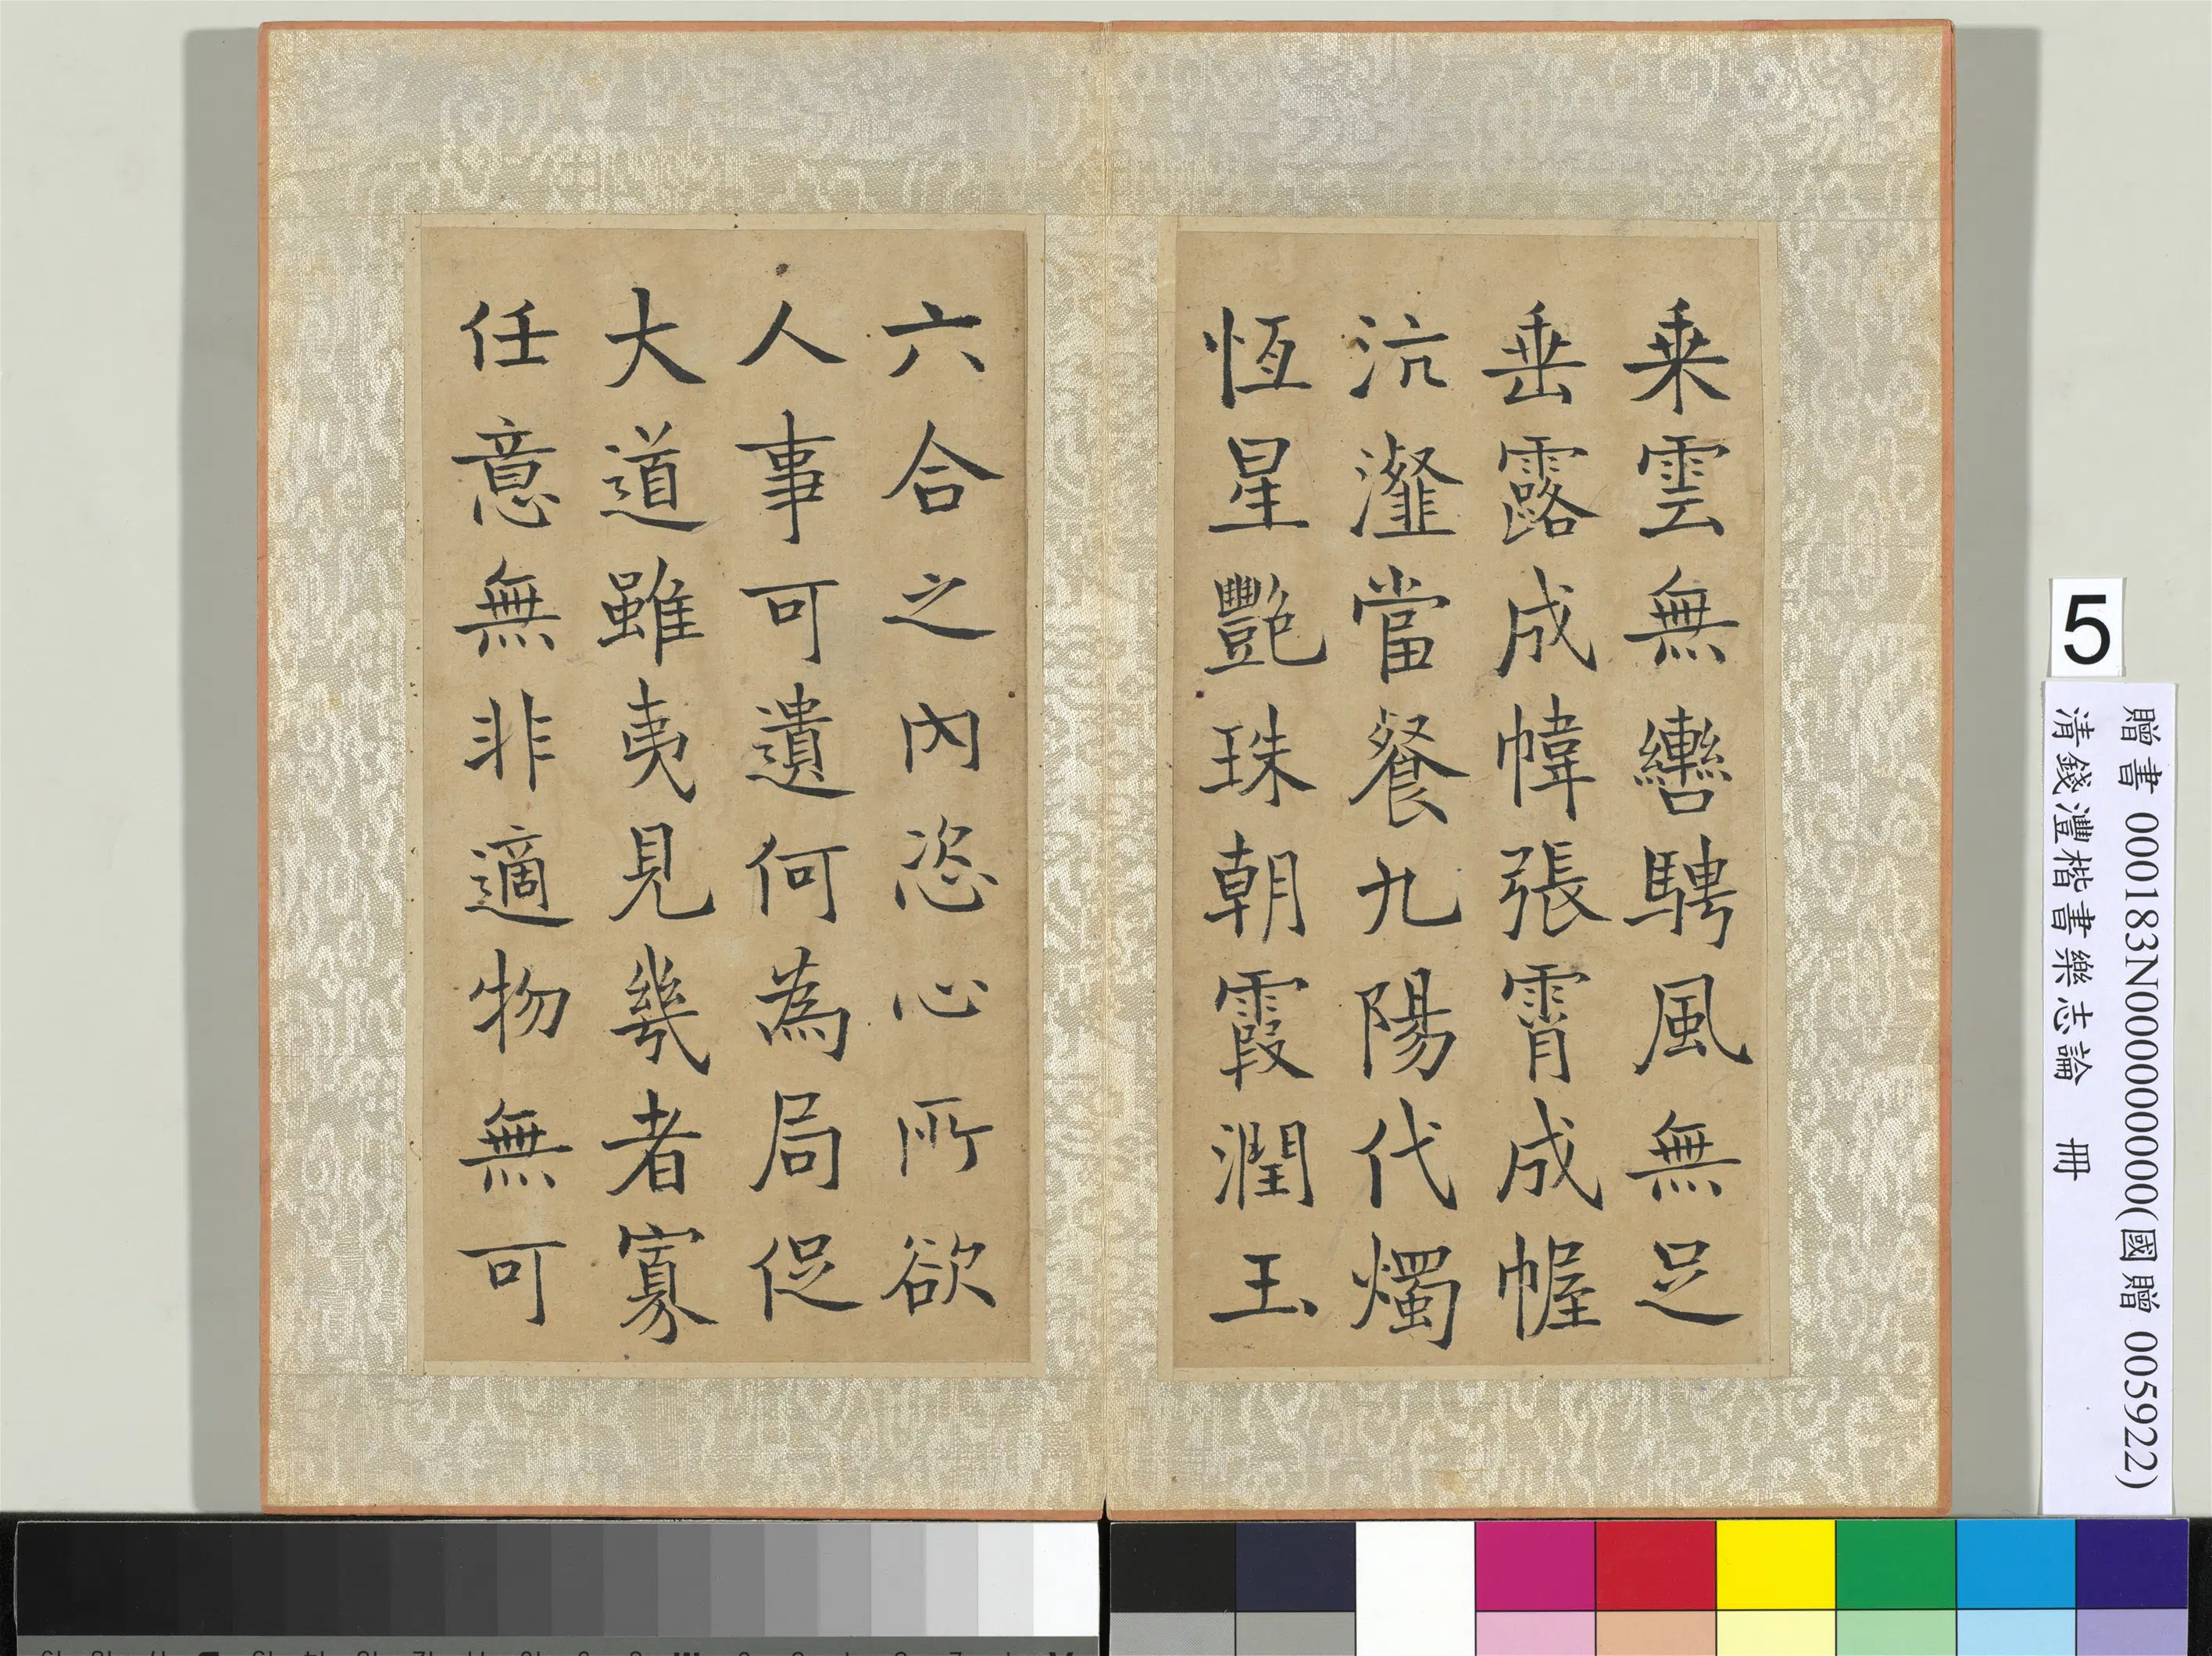 乘雲無轡騁風無足
垂露成幃張霄成幄
沆瀣當餐九陽代燭
恆星艷珠朝霞潤玉
六合之內恣心所欲
人事可遺何為局促
大道雖夷見幾者寡
任意無非適物無可
5
贈書 000183N000000000(國贈 005922)
清錢灃楷書樂志論 冊